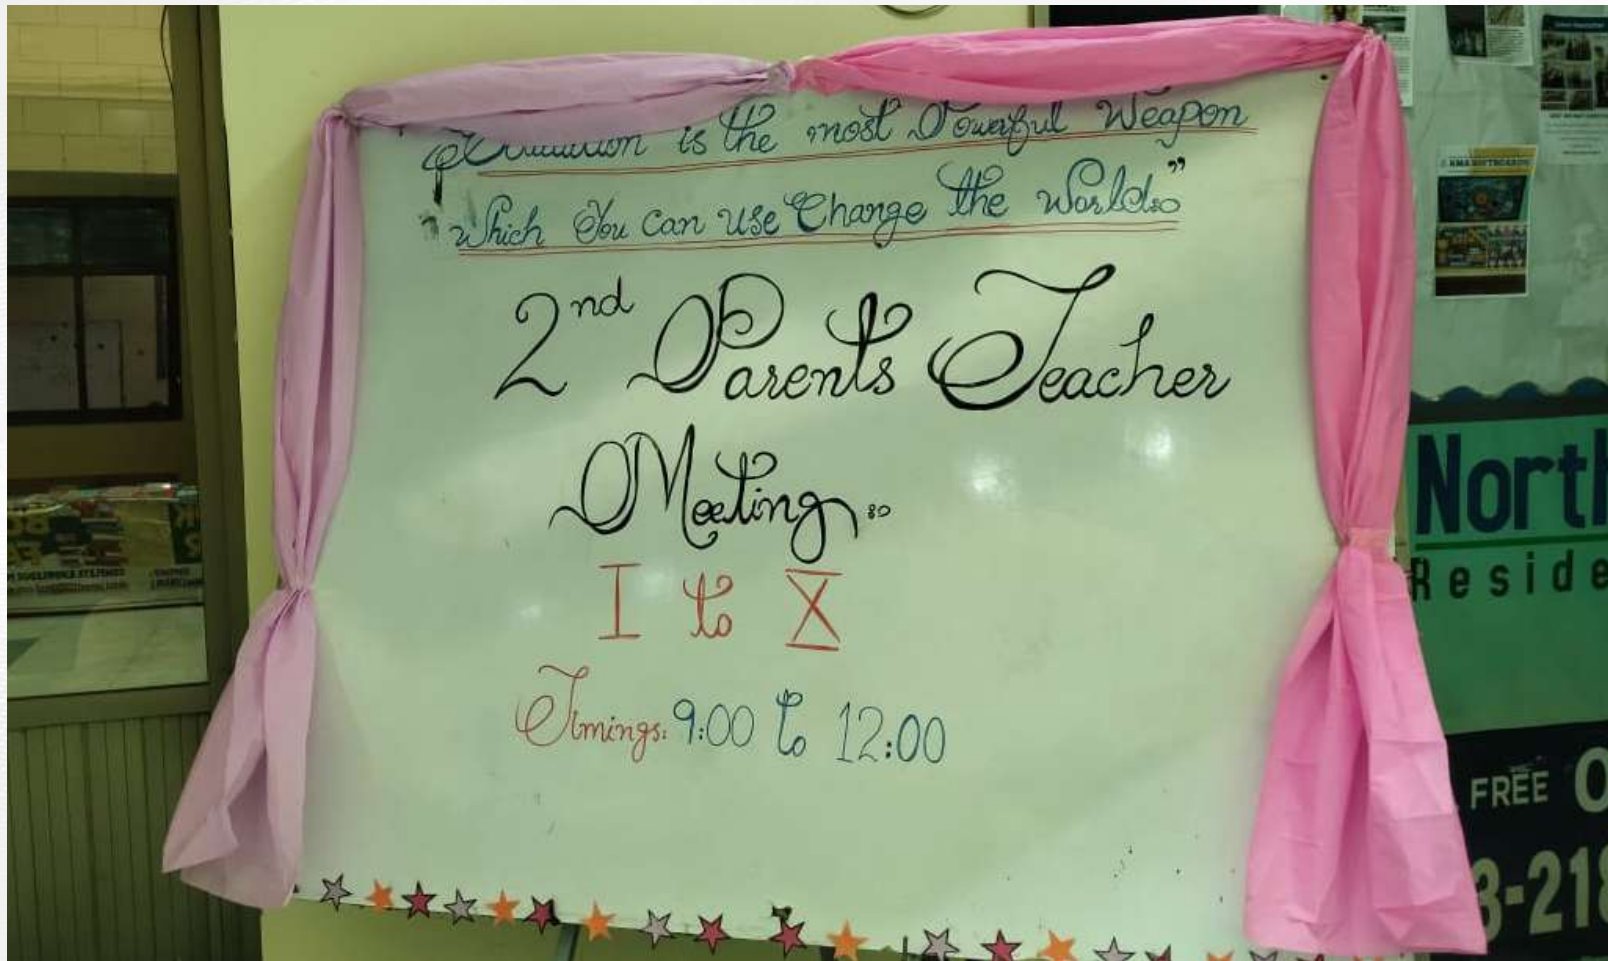 "Education is the most Powerful Weapon
"Which You can use Change the World."
2nd Parents Teacher
Meeting:
I to X
Timings: 9:00 to 12:00
North
Reside
FREE
3-218